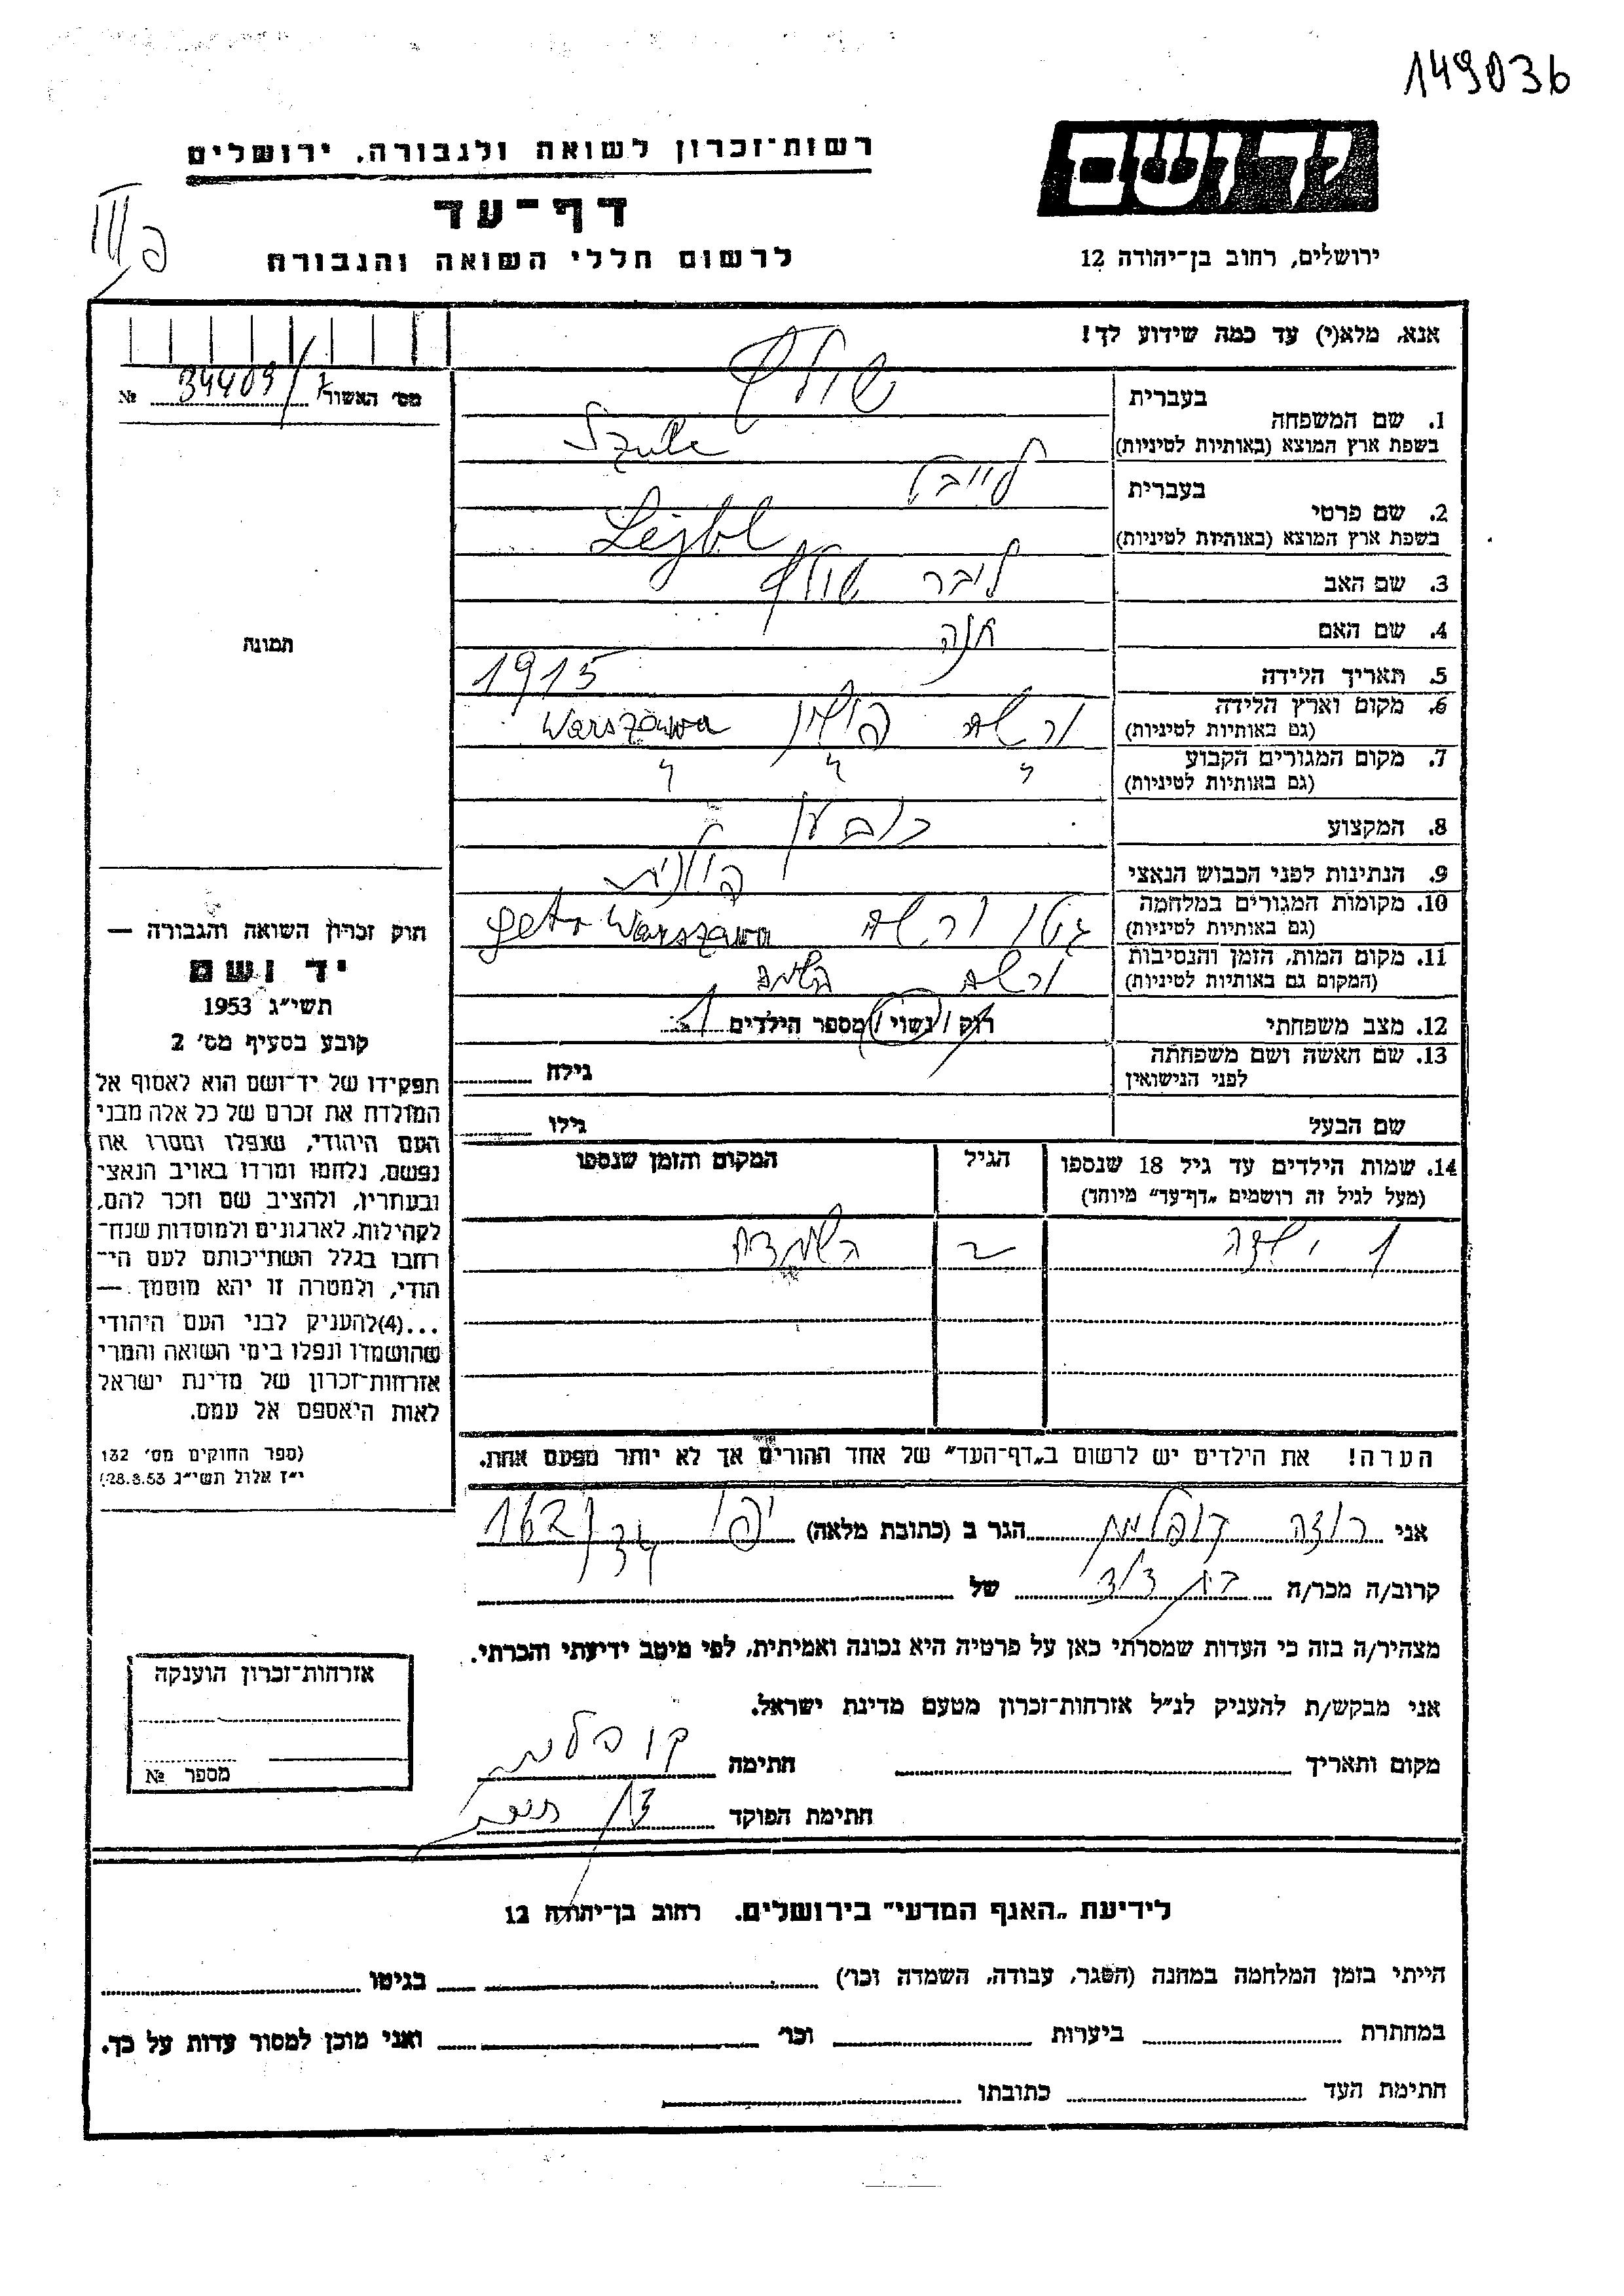 149036
ידושם
רשות־זכרון לשואה ולגבורה, ירושלים
דף־עד
לרשום חללי השואה והגבורה
ירושלים, רחוב בן־יהודה 12
פ III
אנא, מלא(י) עד כמה שידוע לך!
מס׳ האשור 34409/7 №
1. שם המשפחה
בעברית
בשפת ארץ המוצא (באותיות לטיניות)
Szulc
2. שם פרטי
בעברית לייבל
בשפת ארץ המוצא (באותיות לטיניות) Lejbl
3. שם האב ליבר
4. שם האם חנה
5. תאריך הלידה 1915
6. מקום וארץ הלידה ורשה פולין Warszawa
(גם באותיות לטיניות)
7. מקום המגורים הקבוע
(גם באותיות לטיניות)
8. המקצוע כובען
9. הנתינות לפני הכבוש הנאצי פולנית
10. מקומות המגורים במלחמה גטו ורשה geto Warszawa
(גם באותיות לטיניות)
11. מקום המות, הזמן והנסיבות ורשה
(המקום גם באותיות לטיניות)
12. מצב משפחתי רוק / נשוי / מספר הילדים 1
13. שם האשה ושם משפחתה
לפני הנישואין
גילה
שם הבעל
גילו
14. שמות הילדים עד גיל 18 שנספו
(מעל לגיל זה רושמים „דף־עד״ מיוחד)
הגיל
המקום והזמן שנספו
1 ילדה 2 השמדה
הערה! את הילדים יש לרשום ב„דף־העד״ של אחד ההורים אך לא יותר מפעם אחת.
תמונה
חוק זכרון השואה והגבורה —
יד ושם
תשי״ג 1953
קובע בסעיף מס׳ 2
תפקידו של יד־ושם הוא לאסוף אל
המולדת את זכרם של כל אלה מבני
העם היהודי, שנפלו ומסרו את
נפשם, נלחמו ומרדו באויב הנאצי
ובעוזריו, ולהציב שם וזכר להם,
לקהילות, לארגונים ולמוסדות שנח־
רחבו בגלל השתייכותם לעם הי־
הודי, ולמטרה זו יהא מוסמך —
...(4)להעניק לבני העם היהודי
שהושמדו ונפלו בימי השואה והמרי
אזרחות־זכרון של מדינת ישראל
לאות היאספם אל עמם.
(ספר החוקים מס׳ 132
י״ז אלול תשי״ג 28.8.53)
אני רוזה קופלמן הגר ב (כתובת מלאה) יפו 34/162
קרוב/ה מכר/ה בת דוד של
מצהיר/ה בזה כי העדות שמסרתי כאן על פרטיה היא נכונה ואמיתית, לפי מיטב ידיעתי והכרתי.
אני מבקש/ת להעניק לנ״ל אזרחות־זכרון מטעם מדינת ישראל.
מקום ותאריך
חתימה קופלמן
חתימת הפוקד
אזרחות־זכרון הוענקה
מספר №
לידיעת „האגף המדעי״ בירושלים. רחוב בן־יהודה 12
הייתי בזמן המלחמה במחנה (הסגר, עבודה, השמדה וכו׳) בגיטו
במחתרת ביערות וכו׳ ואני מוכן למסור עדות על כך.
חתימת העד כתובתו